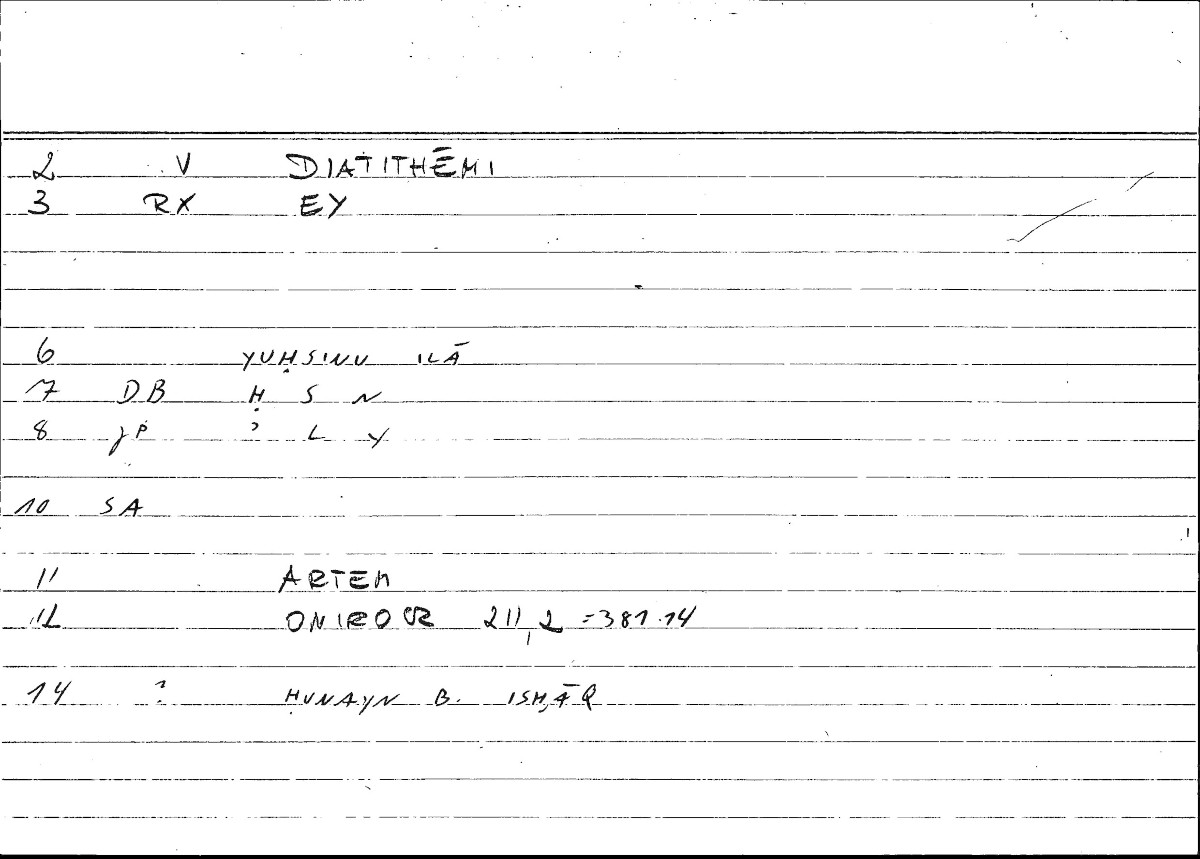 2 V DIATITHĒMI
3 RX EY
6 YUḤSINU ILĀ
7 DB Ḥ S N
8 JP ʾ L Y
10 SA
11 ARTEM
12 ONIROCR 211,2 =381.14
14 ? ḤUNAYN B. ISḤĀQ